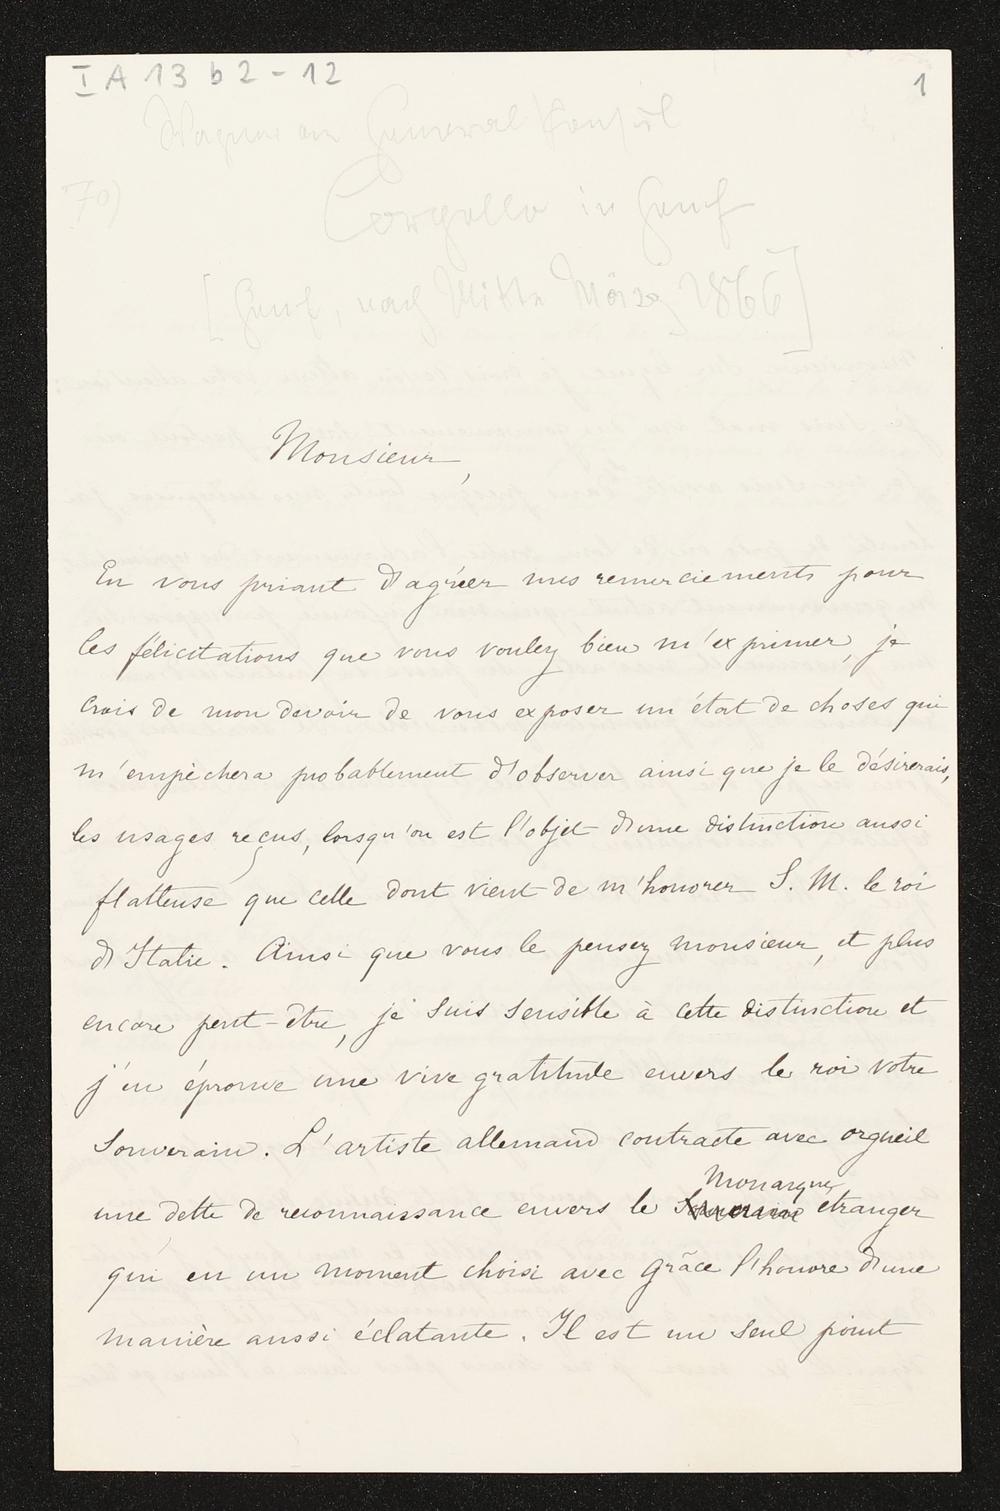 I A 13 b 2 - 12
1
Wagner an General Konsul
70)
Corgella in Genf
[Genf, nach Mitte März 1866]
Monsieur,
En vous priant d'agréer mes remerciements pour
les félicitations que vous voulez bien m'exprimer, je
crois de mon devoir de vous exposer un état de choses qui
m'empêchera probablement d'observer ainsi que je le désirerais,
les usages reçus, lorsqu'on est l'objet d'une distinction aussi
flatteuse que celle dont vient de m'honorer S. M. le roi
d'Italie. Ainsi que vous le pensez monsieur, et plus
encore peut-être, je suis sensible à cette distinction et
j'en éprouve une vive gratitude envers le roi votre
Souverain. L'artiste allemand contracte avec orgueil
Monarque
une dette de reconnaissance envers le Souverain étranger
qui en un moment choisi avec grâce l'honore d'une
manière aussi éclatante. Il est un seul point